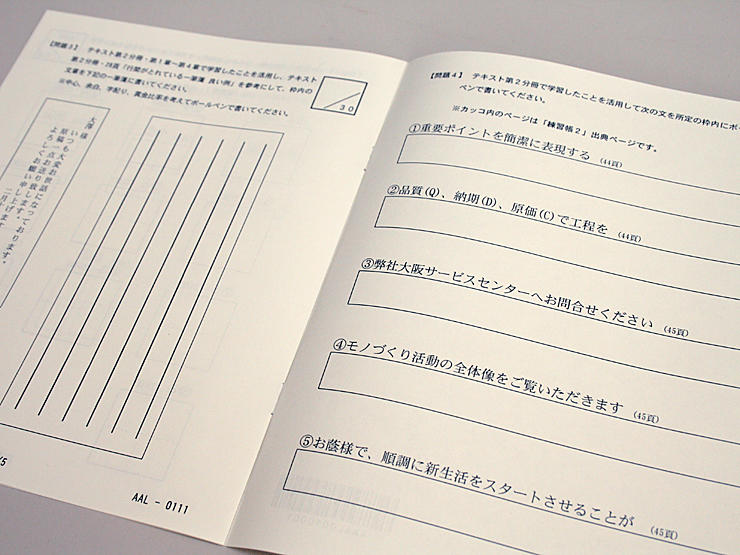 【問題3】 テキスト第2分冊・第1章~第4章で学習したことを活用し、テキスト
第2分冊・28頁「行間がとれている一筆箋 良い例」を参考にして、枠内の
文章を下記の一筆箋に書いてください。
※中心、余白、字配り、黄金比率を考えてボールペンで書いてください。
/30
大澤様
いつも大変お世話になっております。
原稿一点お送り致します。
よろしくお願い申し上げます。
二月
/5
AAL - 0111
【問題4】 テキスト第2分冊で学習したことを活用して次の文を所定の枠内にボー
ペンで書いてください。
※カッコ内のページは「練習帳2」出典ページです。
①重要ポイントを簡潔に表現する (44頁)
②品質(Q)、納期(D)、原価(C)で工程を (44頁)
③弊社大阪サービスセンターへお問合せください (45頁)
④モノづくり活動の全体像をご覧いただきます (45頁)
⑤お蔭様で、順調に新生活をスタートさせることが (45頁)